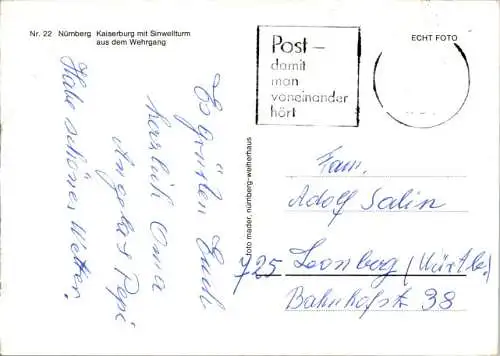 Nr. 22 Nürnberg Kaiserburg mit Sinwellturm
aus dem Wehrgang
ECHT FOTO
Post –
damit
man
voneinander
hört
Es grüßen Euch
herzlich Oma
Angela + Pepi
Habe schönes Wetter.
foto mader, nürnberg-weiherhaus
Fam.
Adolf Salin
725 Leonberg (Württbg.)
Bahnhofstr 38